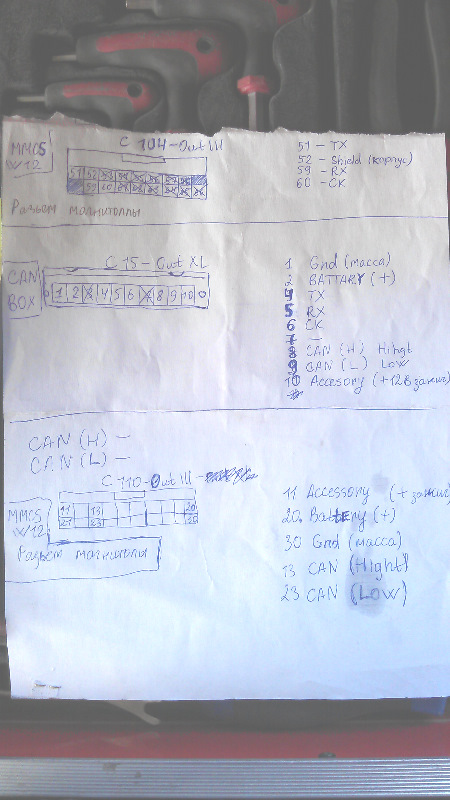 MMCS
W12
C 104-Out III
51 52 53 54 55 56 57 58
59 60 61 62 63 64 65 66
Разъем магнитоллы
51 - TX
52 - Shield (корпус)
59 - RX
60 - CK
CAN
BOX
C 15 - Out XL
1 2 3 4 5 6 7 8 9 10
1 Gnd (масса)
2 BATTARY (+)
4 TX
5 RX
6 CK
7 —
8 CAN (H) Hihgt
9 CAN (L) Low
10 Accesory (+12В зажиг)
CAN (H) —
CAN (L) —
C 110-Out III
MMCS
W12
11 13 20
21 23 30
Разъем магнитоллы
11 Accessory (+ зажиг)
20. Battery (+)
30 Gnd (масса)
13 CAN (Hight)
23 CAN (Low)